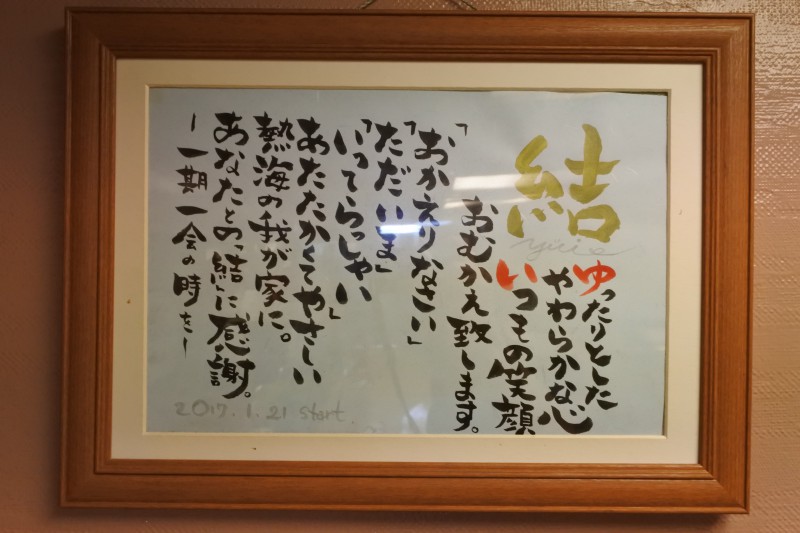 結
yui
ゆったりとした
やわらかな心
いつもの笑顔
おむかえ致します。
「おかえりなさい」
「ただいま」
「いってらっしゃい」
あたたかくてやさしい
熱海の我が家に。
あなたとの結に感謝。
ー一期一会の時をー
2017.1.21 start.